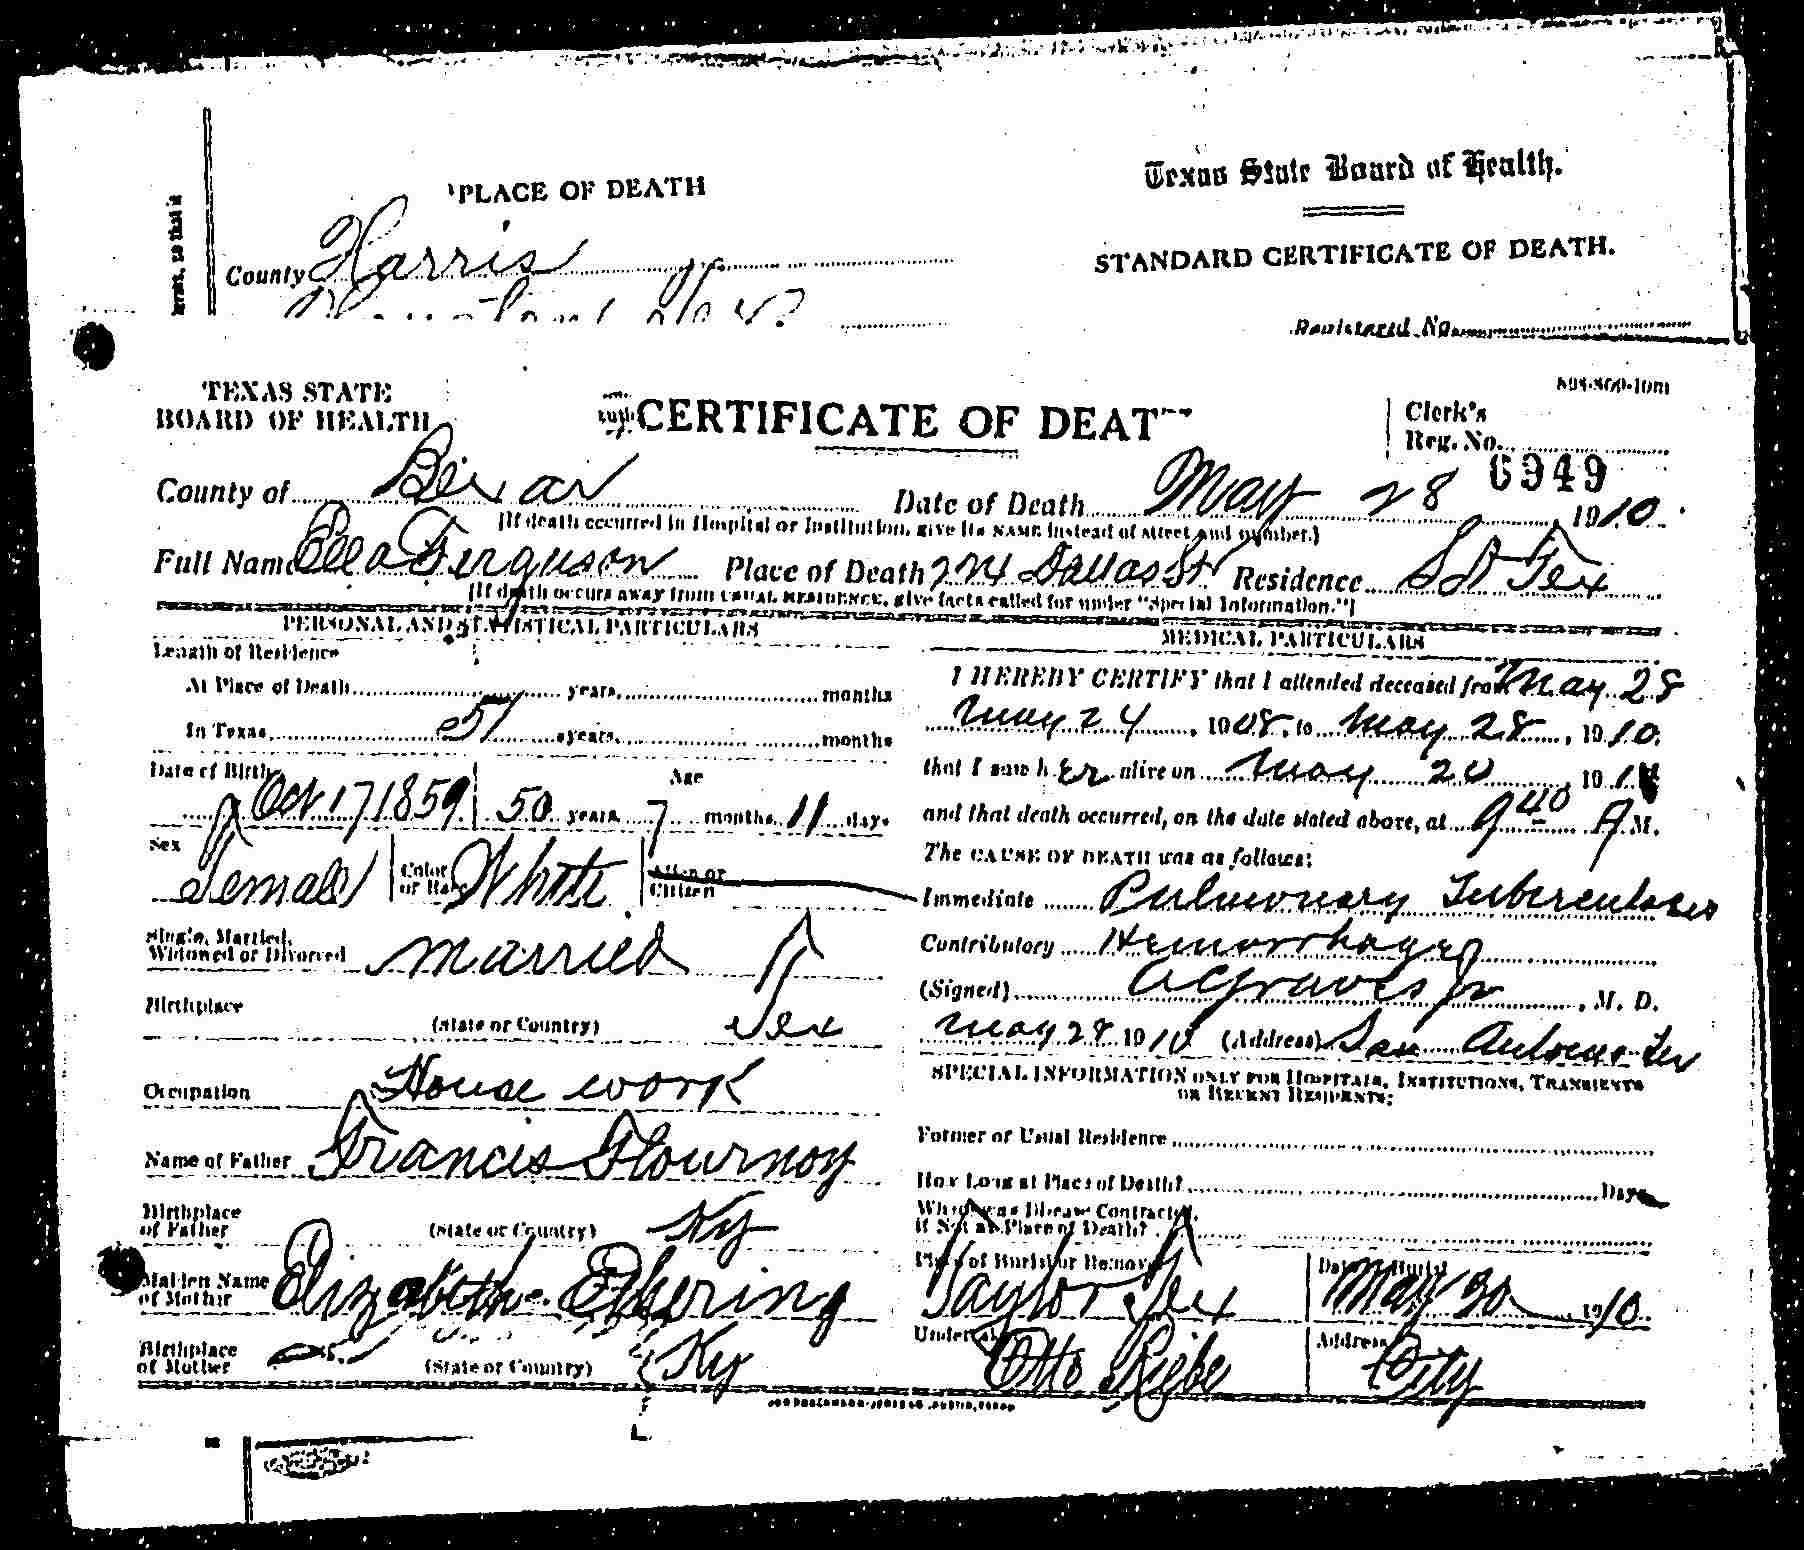 PLACE OF DEATH
Texas State Board of Health.
STANDARD CERTIFICATE OF DEATH.
County Harris
Registered No.
TEXAS STATE
BOARD OF HEALTH
CERTIFICATE OF DEAT
Clerk's
Reg. No.
6949
County of Bexar Date of Death May 28 1910.
[If death occurred in Hospital or Institution, give its NAME instead of street and number.]
Full Name Ella Ferguson Place of Death 224 Dallas St Residence S A Tex
[If death occurs away from USUAL RESIDENCE, give facts called for under "Special Information."]
PERSONAL AND STATISTICAL PARTICULARS
Length of Residence
At Place of Death years, months
In Texas 51 years, months
Date of Birth Age
Oct 17 1859 50 years 7 months 11 days
Sex Female Color or Race White Alien or Citizen
Single, Married,
Widowed or Divorced Married
Birthplace (State or Country) Tex
Occupation House work
Name of Father Francis Flournoy
Birthplace
of Father (State or Country) Ky
Maiden Name
of Mother Elizabeth
Birthplace
of Mother (State or Country) Ky
MEDICAL PARTICULARS
I HEREBY CERTIFY that I attended deceased from May 28
May 24, 1908, to May 28, 1910.
that I saw her alive on May 20 191
and that death occurred, on the date stated above, at 9 40 A M.
The CAUSE OF DEATH was as follows:
Immediate Pulmonary Tuberculosis
Contributory Hemorrhage
(Signed) A Graves Jr, M. D.
May 28 1910 (Address) San Antonio Tex
SPECIAL INFORMATION ONLY FOR HOSPITALS, INSTITUTIONS, TRANSIENTS
OR RECENT RESIDENTS:
Former or Usual Residence
How Long at Place of Death? Days
Where was Disease Contracted,
If Not at Place of Death?
Place of Burial or Removal Taylor Tex Date of Burial May 30 1910.
Undertaker Otto Riebe Address City